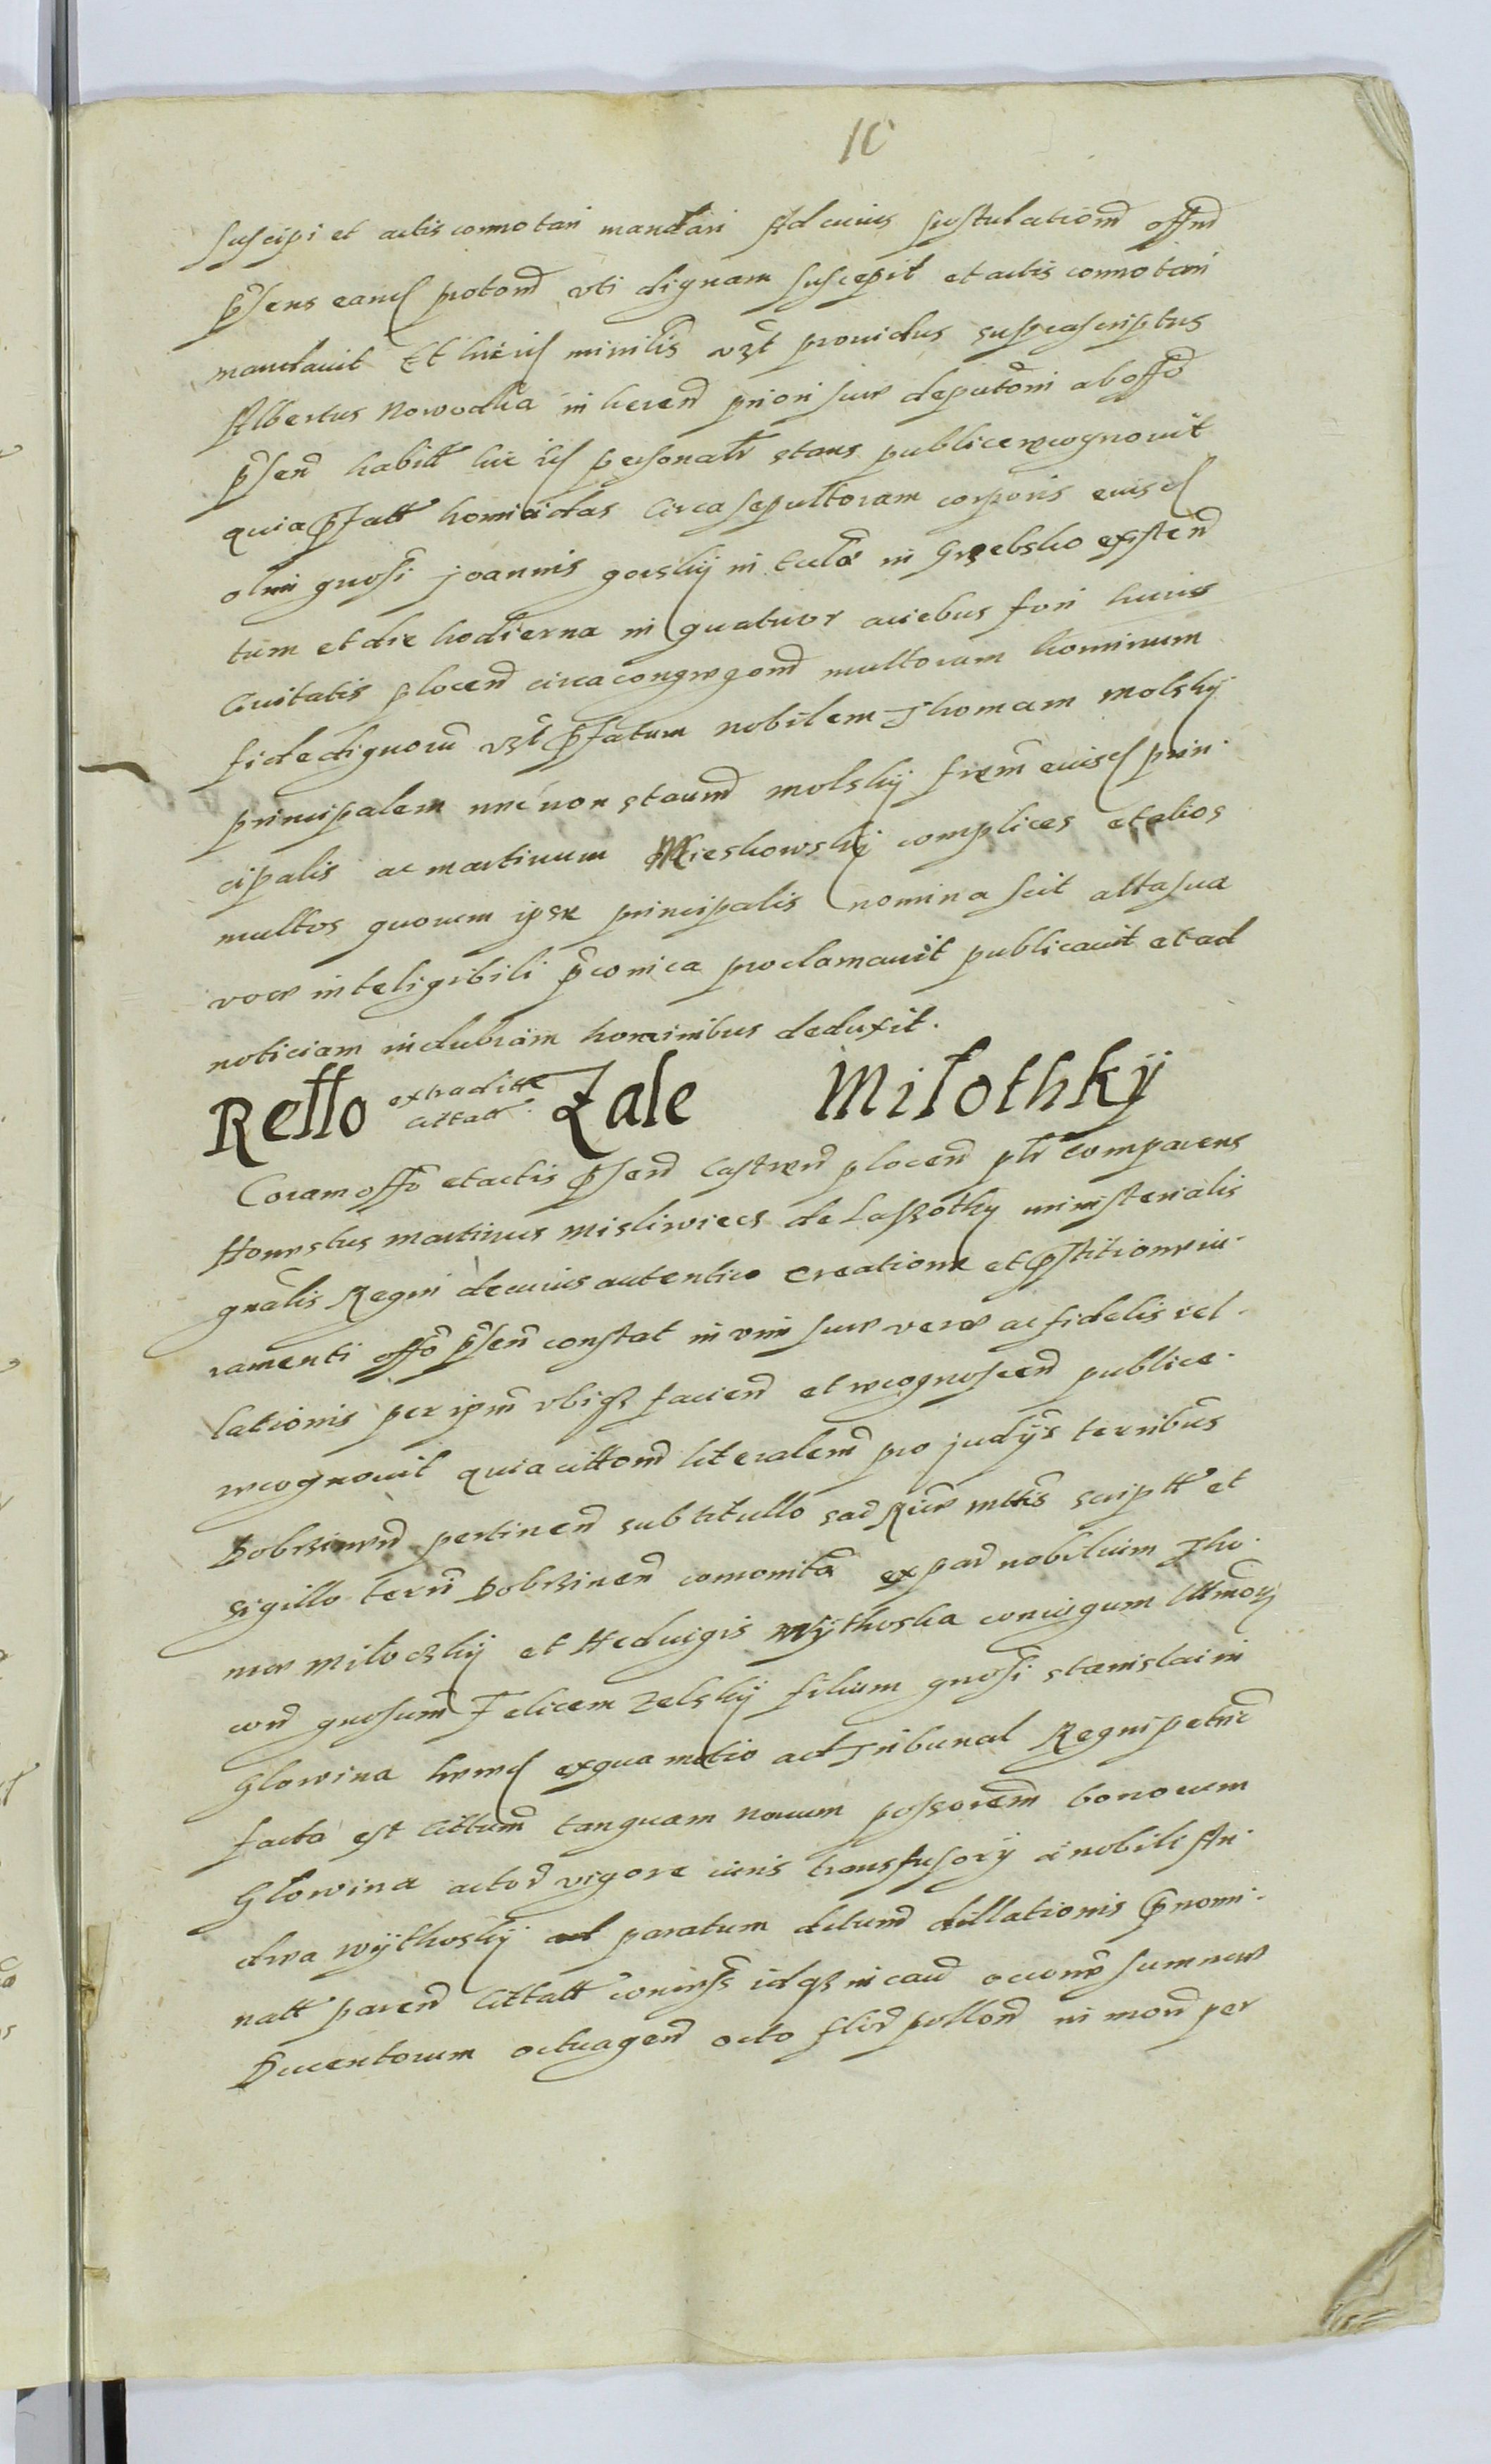 10
suscipi et actis connotari mandari Ad cuius postulationẽ offm̃
p̃sens eand protonẽ vti dignam suscepit et actis connotari
mandavit Et hic ibid minilis̃ vzt providus suprascriptus
Albertus Nowodka in heren̄ priori sue deputõni ab offõ
p̃sen̄ habitt hic ibid personalr̃ stans publice recognovit
quia p̃fatt homicidas circa sepulturam corporis eiusd
olim gnosi Joannis gorskij in Eccla in Grzebsko existen̄
tum et die hodierna in quatuor aciebus fori huius
Civitatis plocen̄ circa congregõnẽ multorum hominum
fidedignorũ vzt p̃fatum nobilem Thomam Molskij
principalem nec non staum̄ molskij frem̃ eiusd prin.
cipalis ac martinum Mieskowskij complices et alios
multos quorum ipse principalis nomina scit alta sua
voce inteligibili p̃conica proclamavit publicavit et ad
noticiam indubiam hominibus deduxit.
Rello extraditte cittatt. Zale Milothky
Coram offõ et actis p̃sen̄ Castren̄ plocen̄ plr̃ comparens
Honestus martinus misliwiecz de Laszothky ministerialis
gnãlis Regni de cuius autentico creatione et p̃stitione iu.
ramenti offõ p̃sen̄ constat in vim sue vere ac fidelis rel.
lationis per ipm̃ vbiqz facien̄ et recognoscen̄ publice.
recognovit quia cittonẽ literalem̃ pro judijs terribus̃
Dobrzinen̄ pertinen̄ sub titullo sac̃ Rcie mttis̃ scriptt et
sigillo terri Dobrzinen̄ comonitã ex par̃ nobilium Tho.
me Miloczkij et Heduigis Wijthoska coniugum
con̄ gnosum̃ Felicem Zelskij filium gnosi stanislai in
Glowina hered ex qua motio ad Tribunal Regni petric̃
facta est Cittum̃ tanquam novum possorem̃ bonorum
Glowina actor̃ vigore iuris transfusorij a nobili An.
drea Wijthoskij ad paratum dectum̃ dillationis p̃nomi.
natt paren̄ Cittatt coniugũ idqz in cau̇ occone summe
Ducentorum octuagen̄ octo flor̃ pollon̄ in mon̄ per